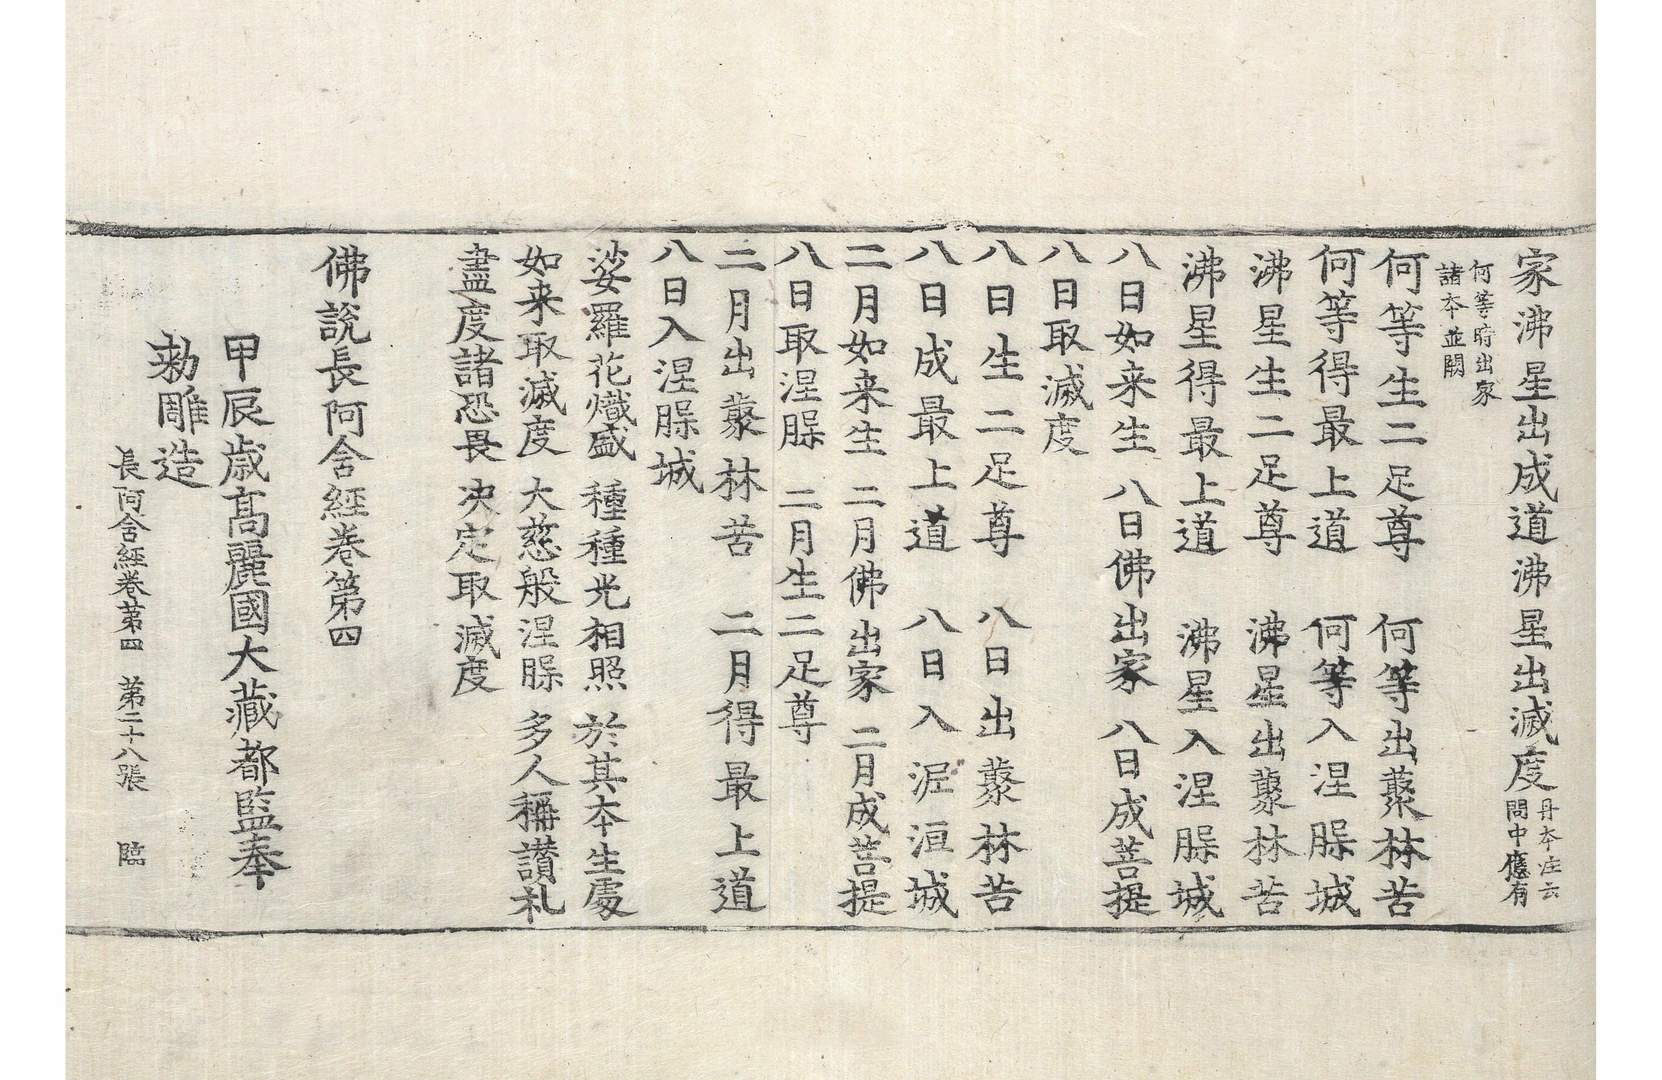 家沸星出成道沸星出滅度丹本注云問中應有
何等時出家諸本並闕
何等生二足尊　何等出藂林苦
何等得最上道　何等入涅槃城
沸星生二足尊　沸星出藂林苦
沸星得最上道　沸星入涅槃城
八日如来生　八日佛出家　八日成菩提
八日取滅度
八日生二足尊　八日出藂林苦
八日成最上道　八日入泥洹城
二月如来生　二月佛出家　二月成菩提
八日取涅槃　二月生二足尊
二月出藂林苦　二月得最上道
八日入涅槃城
娑羅花熾盛　種種光相照　於其本生處
如来取滅度　大慈般涅槃　多人稱讃礼
盡度諸恐畏　决定取滅度
佛說長阿含經卷第四
甲辰歳高麗國大藏都監奉
勑雕造
長阿含經卷第四　第二十八張　臨